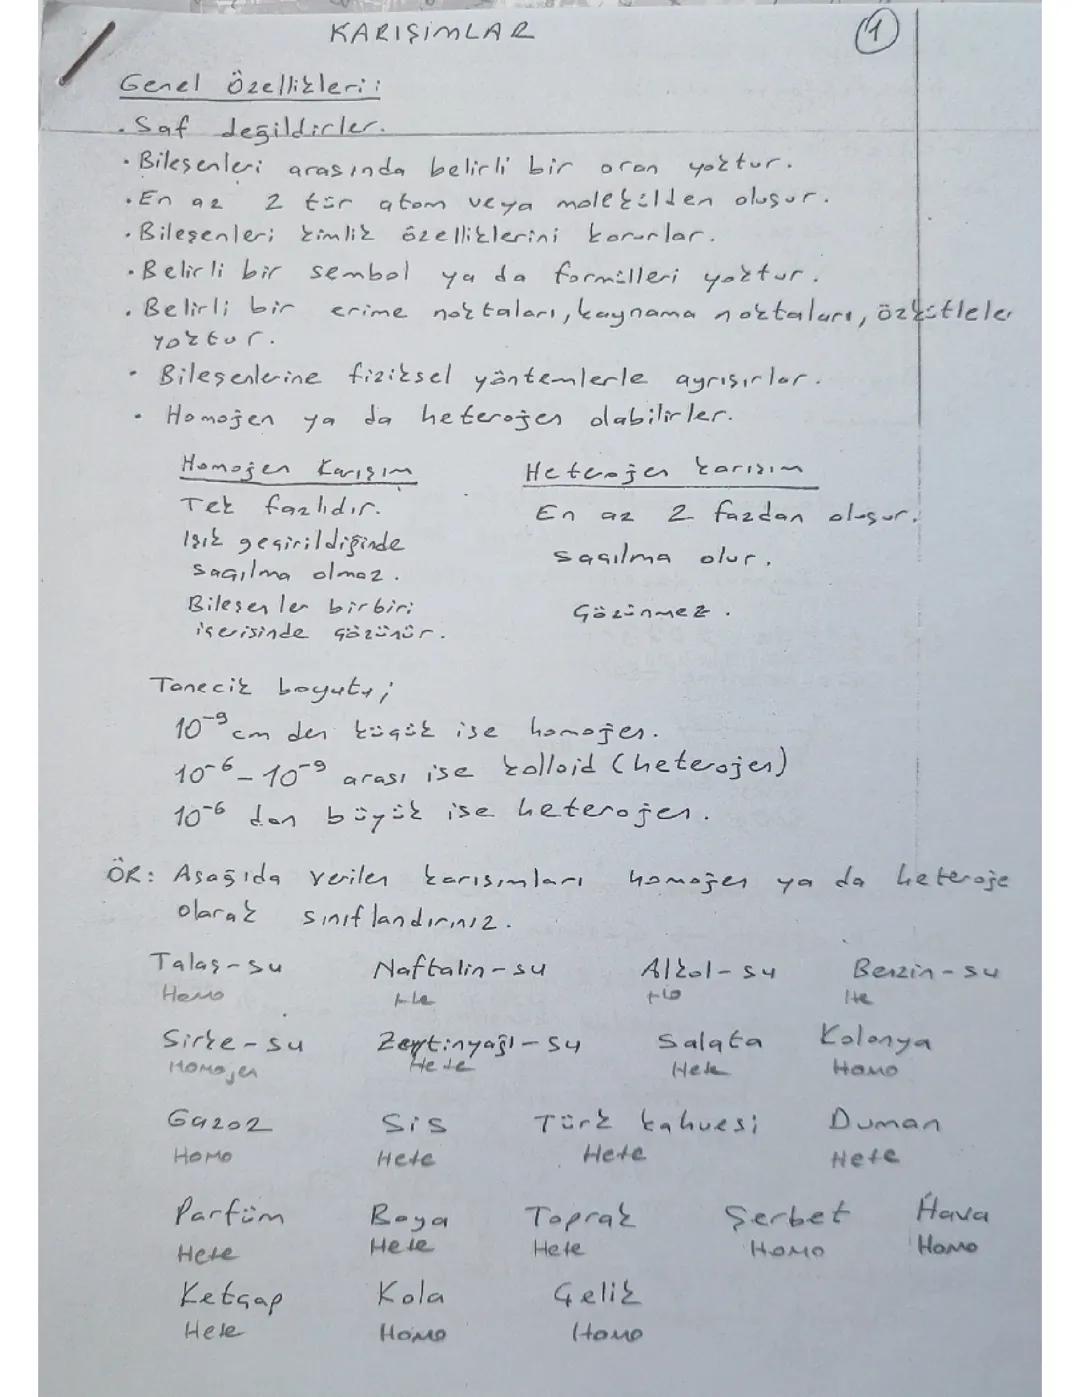 KARIŞIMLAR
1
Genel Özellikleri:
. Saf değildirler.
. Bileşenleri arasında belirli bir oran yoktur.
. En az 2 tür atom veya molekülden oluşur.
. Bileşenleri kimlik özelliklerini korurlar.
. Belirli bir sembol ya da formülleri yoktur.
. Belirli bir erime noktaları, kaynama noktaları, özkütleler
yoktur.
. Bileşenlerine fiziksel yöntemlerle ayrışırlar.
. Homojen ya da heterojen olabilirler.
Homojen Karışım Heterojen karışım
Tek fazlıdır. En az 2 fazdan oluşur.
Işık geçirildiğinde
saçılma olmaz. saçılma olur.
Bileşenler birbiri
içerisinde çözünür. Çözünmez.
Tanecik boyutu;
10⁻⁹ cm den küçük ise homojen.
10⁻⁶ - 10⁻⁹ arası ise kolloid (heterojen)
10⁻⁶ dan büyük ise heterojen.
ÖR: Aşağıda verilen karışımları homojen ya da heteroje
olarak sınıflandırınız.
Talaş-su Naftalin-su Alkol-su Benzin-su
Homo He Ho He
Sirke-su Zeytinyağı-su Salata Kolonya
Homojen Hete Hete Homo
Gazoz Sis Türk kahvesi Duman
Homo Hete Hete Hete
Parfüm Boya Toprak Şerbet Hava
Hete Hete Hete Homo Homo
Ketçap Kola Çelik
Hete Homo Homo